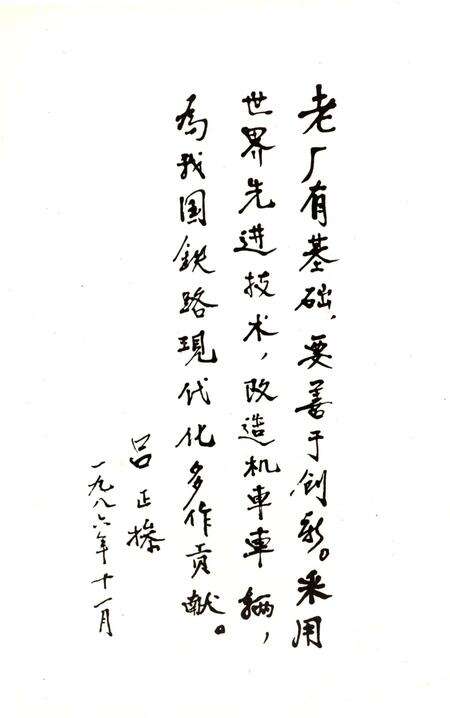 老厂有基础，要善于创新。采用
世界先进技术，改造机車車辆，
為我国鉄路現代化多作貢献。
吕正操
一九八六年十一月